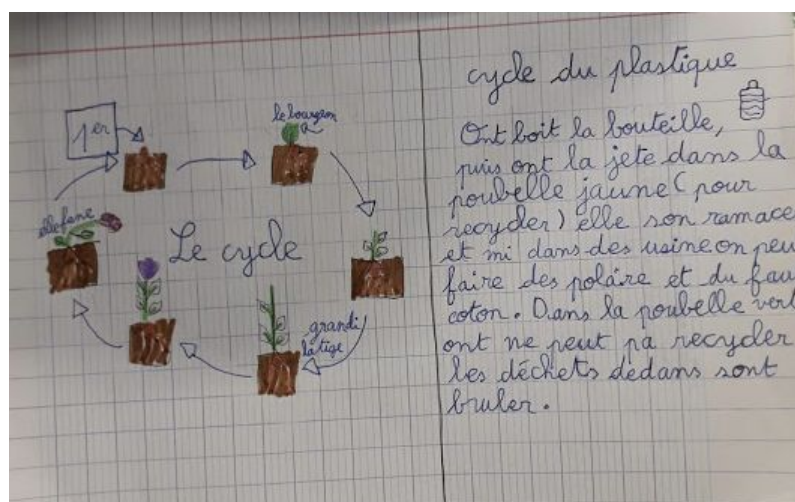 1er
le bourgeon
grandi
la tige
elle fane
Le cycle
cycle du plastique
Ont boit la bouteille,
puis ont la jete dans la
poubelle jaune (pour
recycler) elle son ramace
et mi dans des usine on peu
faire des polaire et du faux
coton. Dans la poubelle vert
ont ne peut pa recycler
les déchets dedans sont
bruler.